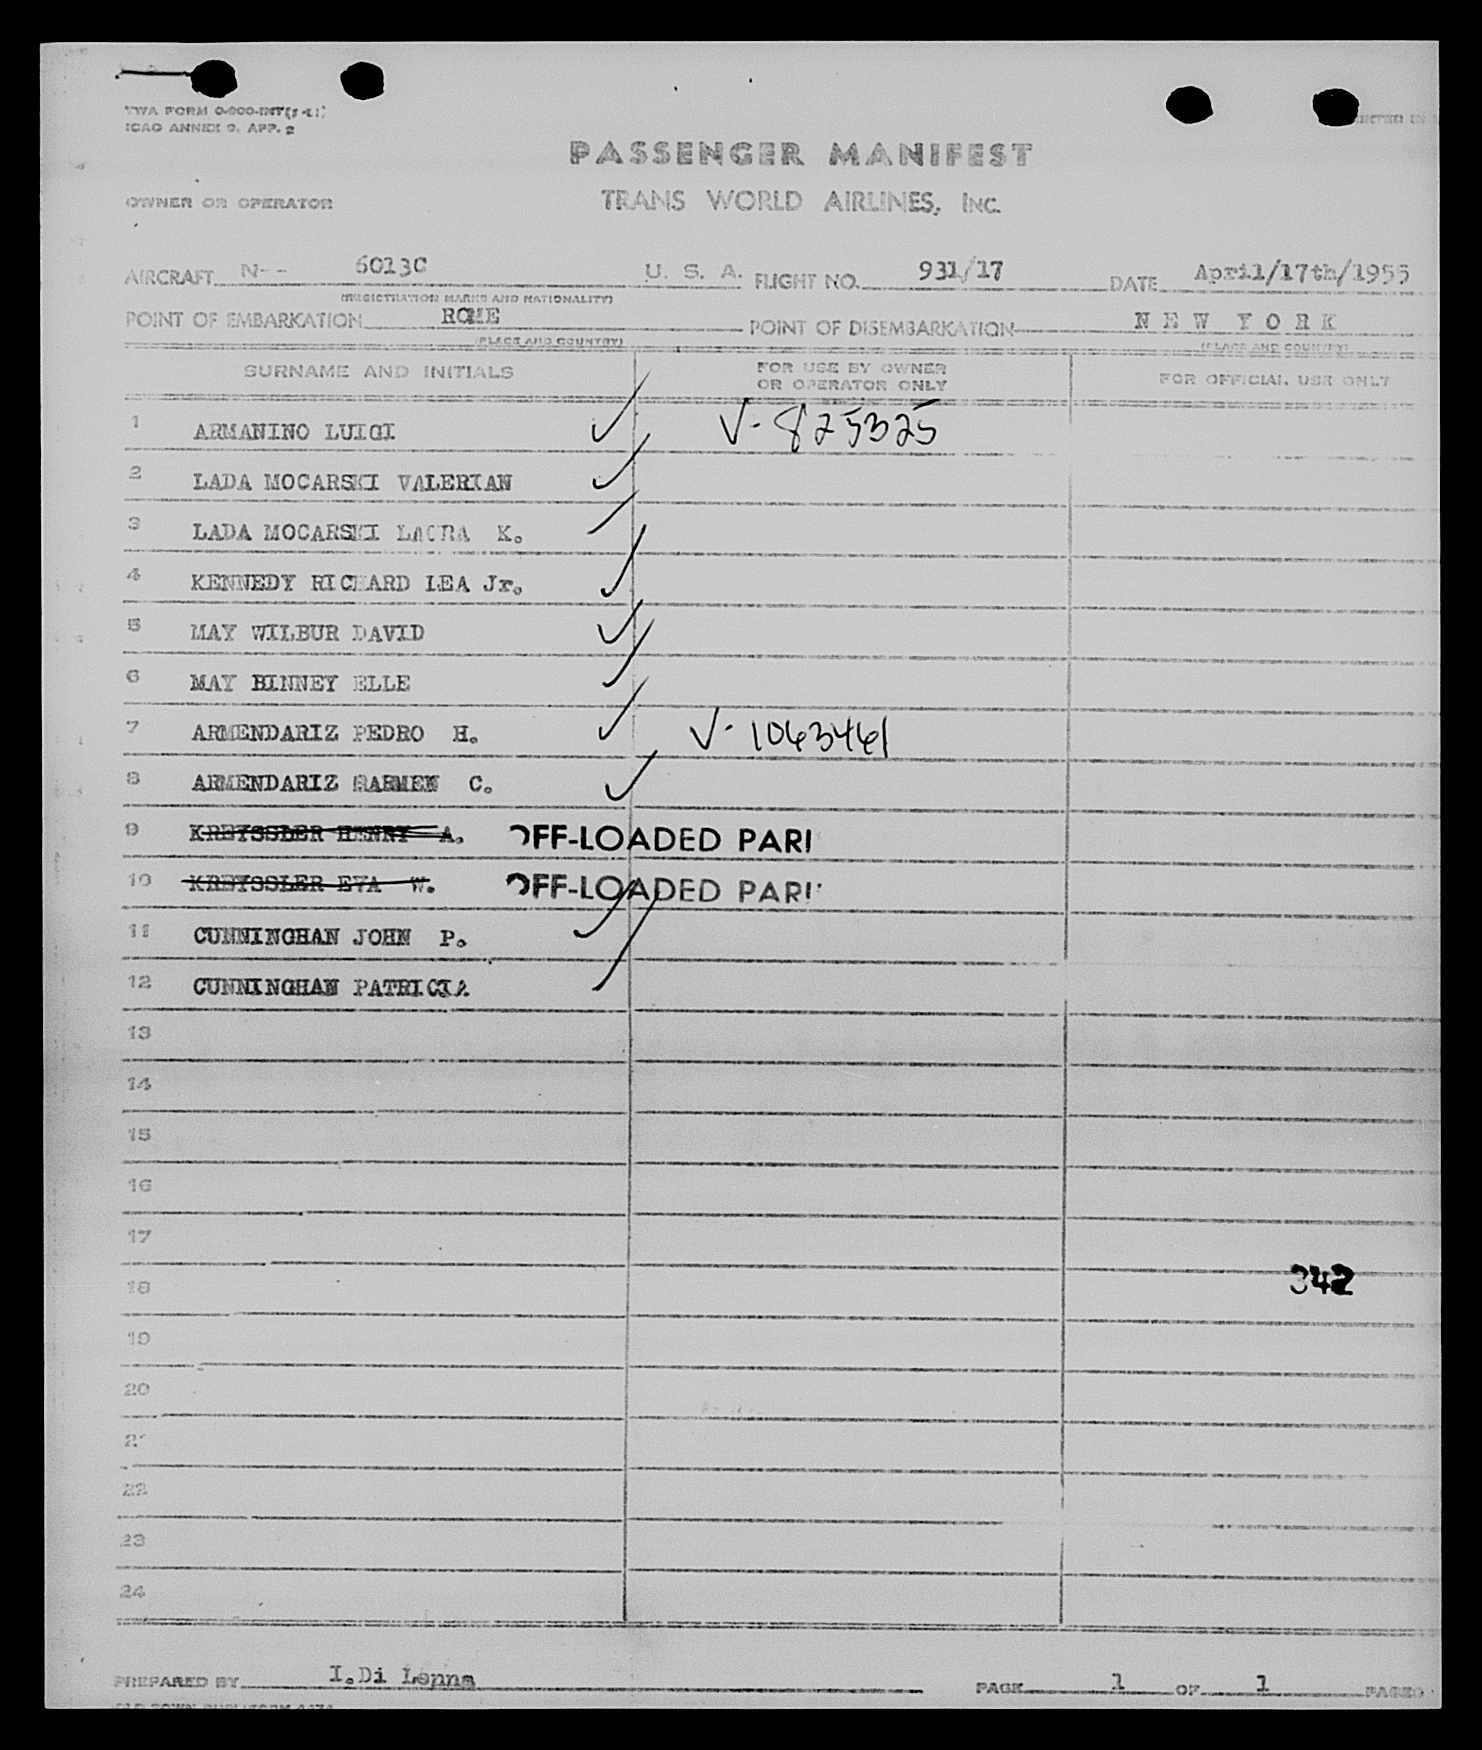 TWA FORM
ICAO ANNEX 9, APP. 2
PASSENGER MANIFEST
OWNER OR OPERATOR
TRANS WORLD AIRLINES, INC.
AIRCRAFT N-- 6013C U. S. A. FLIGHT NO. 931/17 DATE April/17th/1955
(REGISTRATION MARKS AND NATIONALITY)
POINT OF EMBARKATION ROME POINT OF DISEMBARKATION N E W Y O R K
(PLACE AND COUNTRY) (PLACE AND COUNTRY)
SURNAME AND INITIALS FOR USE BY OWNER OR OPERATOR ONLY FOR OFFICIAL USE ONLY
1 ARMANINO LUIGI V-825325
2 LADA MOCARSKI VALERIAN
3 LADA MOCARSKI LAURA K.
4 KENNEDY RICHARD LEA Jr.
5 MAY WILBUR DAVID
6 MAY BINNEY ELLE
7 ARMENDARIZ PEDRO H. V-1063461
8 ARMENDARIZ CARMEN C.
9 KREYSSLER HENRY A. OFF-LOADED PARI
10 KREYSSLER EVA W. OFF-LOADED PARI
11 CUNNINGHAN JOHN P.
12 CUNNINGHAN PATRICIA
13
14
15
16
17
342
18
19
20
21
22
23
24
PREPARED BY I.Di Lenna PAGE 1 OF 1 PAGES